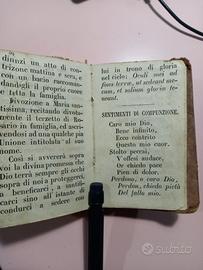 dinzi un atto di con-
trizione mattina e sera, e
con un bacio raccoman-
dandogli il proprio cuore
e tutta la famiglia.
Divozione a Maria san-
tissima, recitando divota-
mente il terzetto di Ro-
sario in famiglia, ed ascri-
vendosi ad una qualche pia
Unione intitolata al suo
nome.
Così si avvererà sopra
di voi la divina promessa
Dio terrà sempre gli occhi
sopra di noi a proteggerci,
a beneficarci, a santifi-
carci sino all'istante di
condurci a sedere con
lui in trono di gloria
nel cielo: Oculi mei ad
fines terræ, ut sedeant me-
cum, et solium gloriæ te-
neant.
SENTIMENTI DI COMPUNZIONE.
Caro mio Dio,
Bene infinito,
Ecco contrito
Questo mio cuor.
Stolto peccai,
V'offesi audace,
Or chiedo pace
Pien di dolor.
Perdono, o caro Dio,
Perdon, chiedo pietà
Del fallo mio.
subito